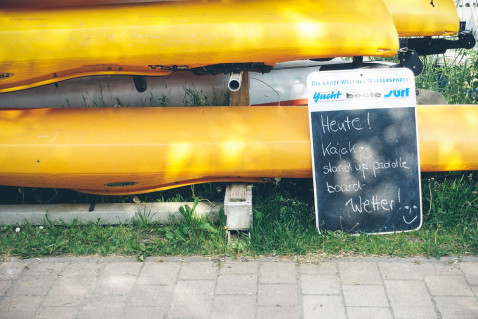 DIE GANZE WELT DES WASSERSPORTS
Yacht boote surf
Heute!
Kajak-
stand up paddle
board-
Wetter!